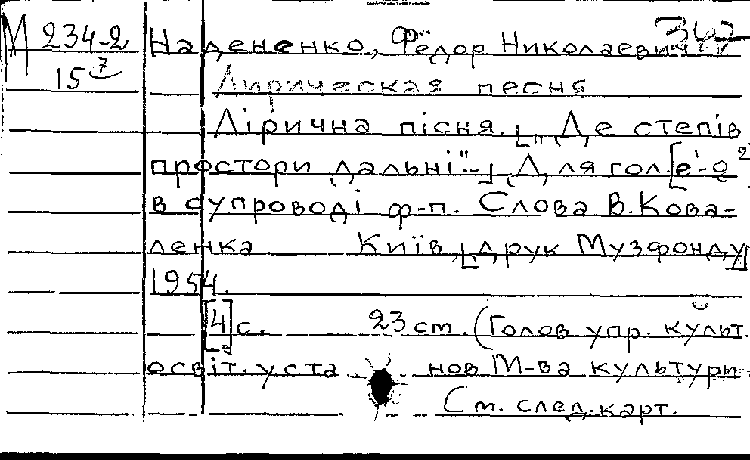 М 234-2
15 7
Надененко, Фёдор Николаевич
Лирическая песня
Лірична пісня. [„Де степів
простори дальні"..] [Для гол[е¹-g²]
в супроводі ф-п. Слова В. Кова=
ленка Київ, [друк Музфонду]
1954.
[4] с. 23 см. (Голов упр. культ.
освіт. уста нов М-ва культури
См. след. карт.